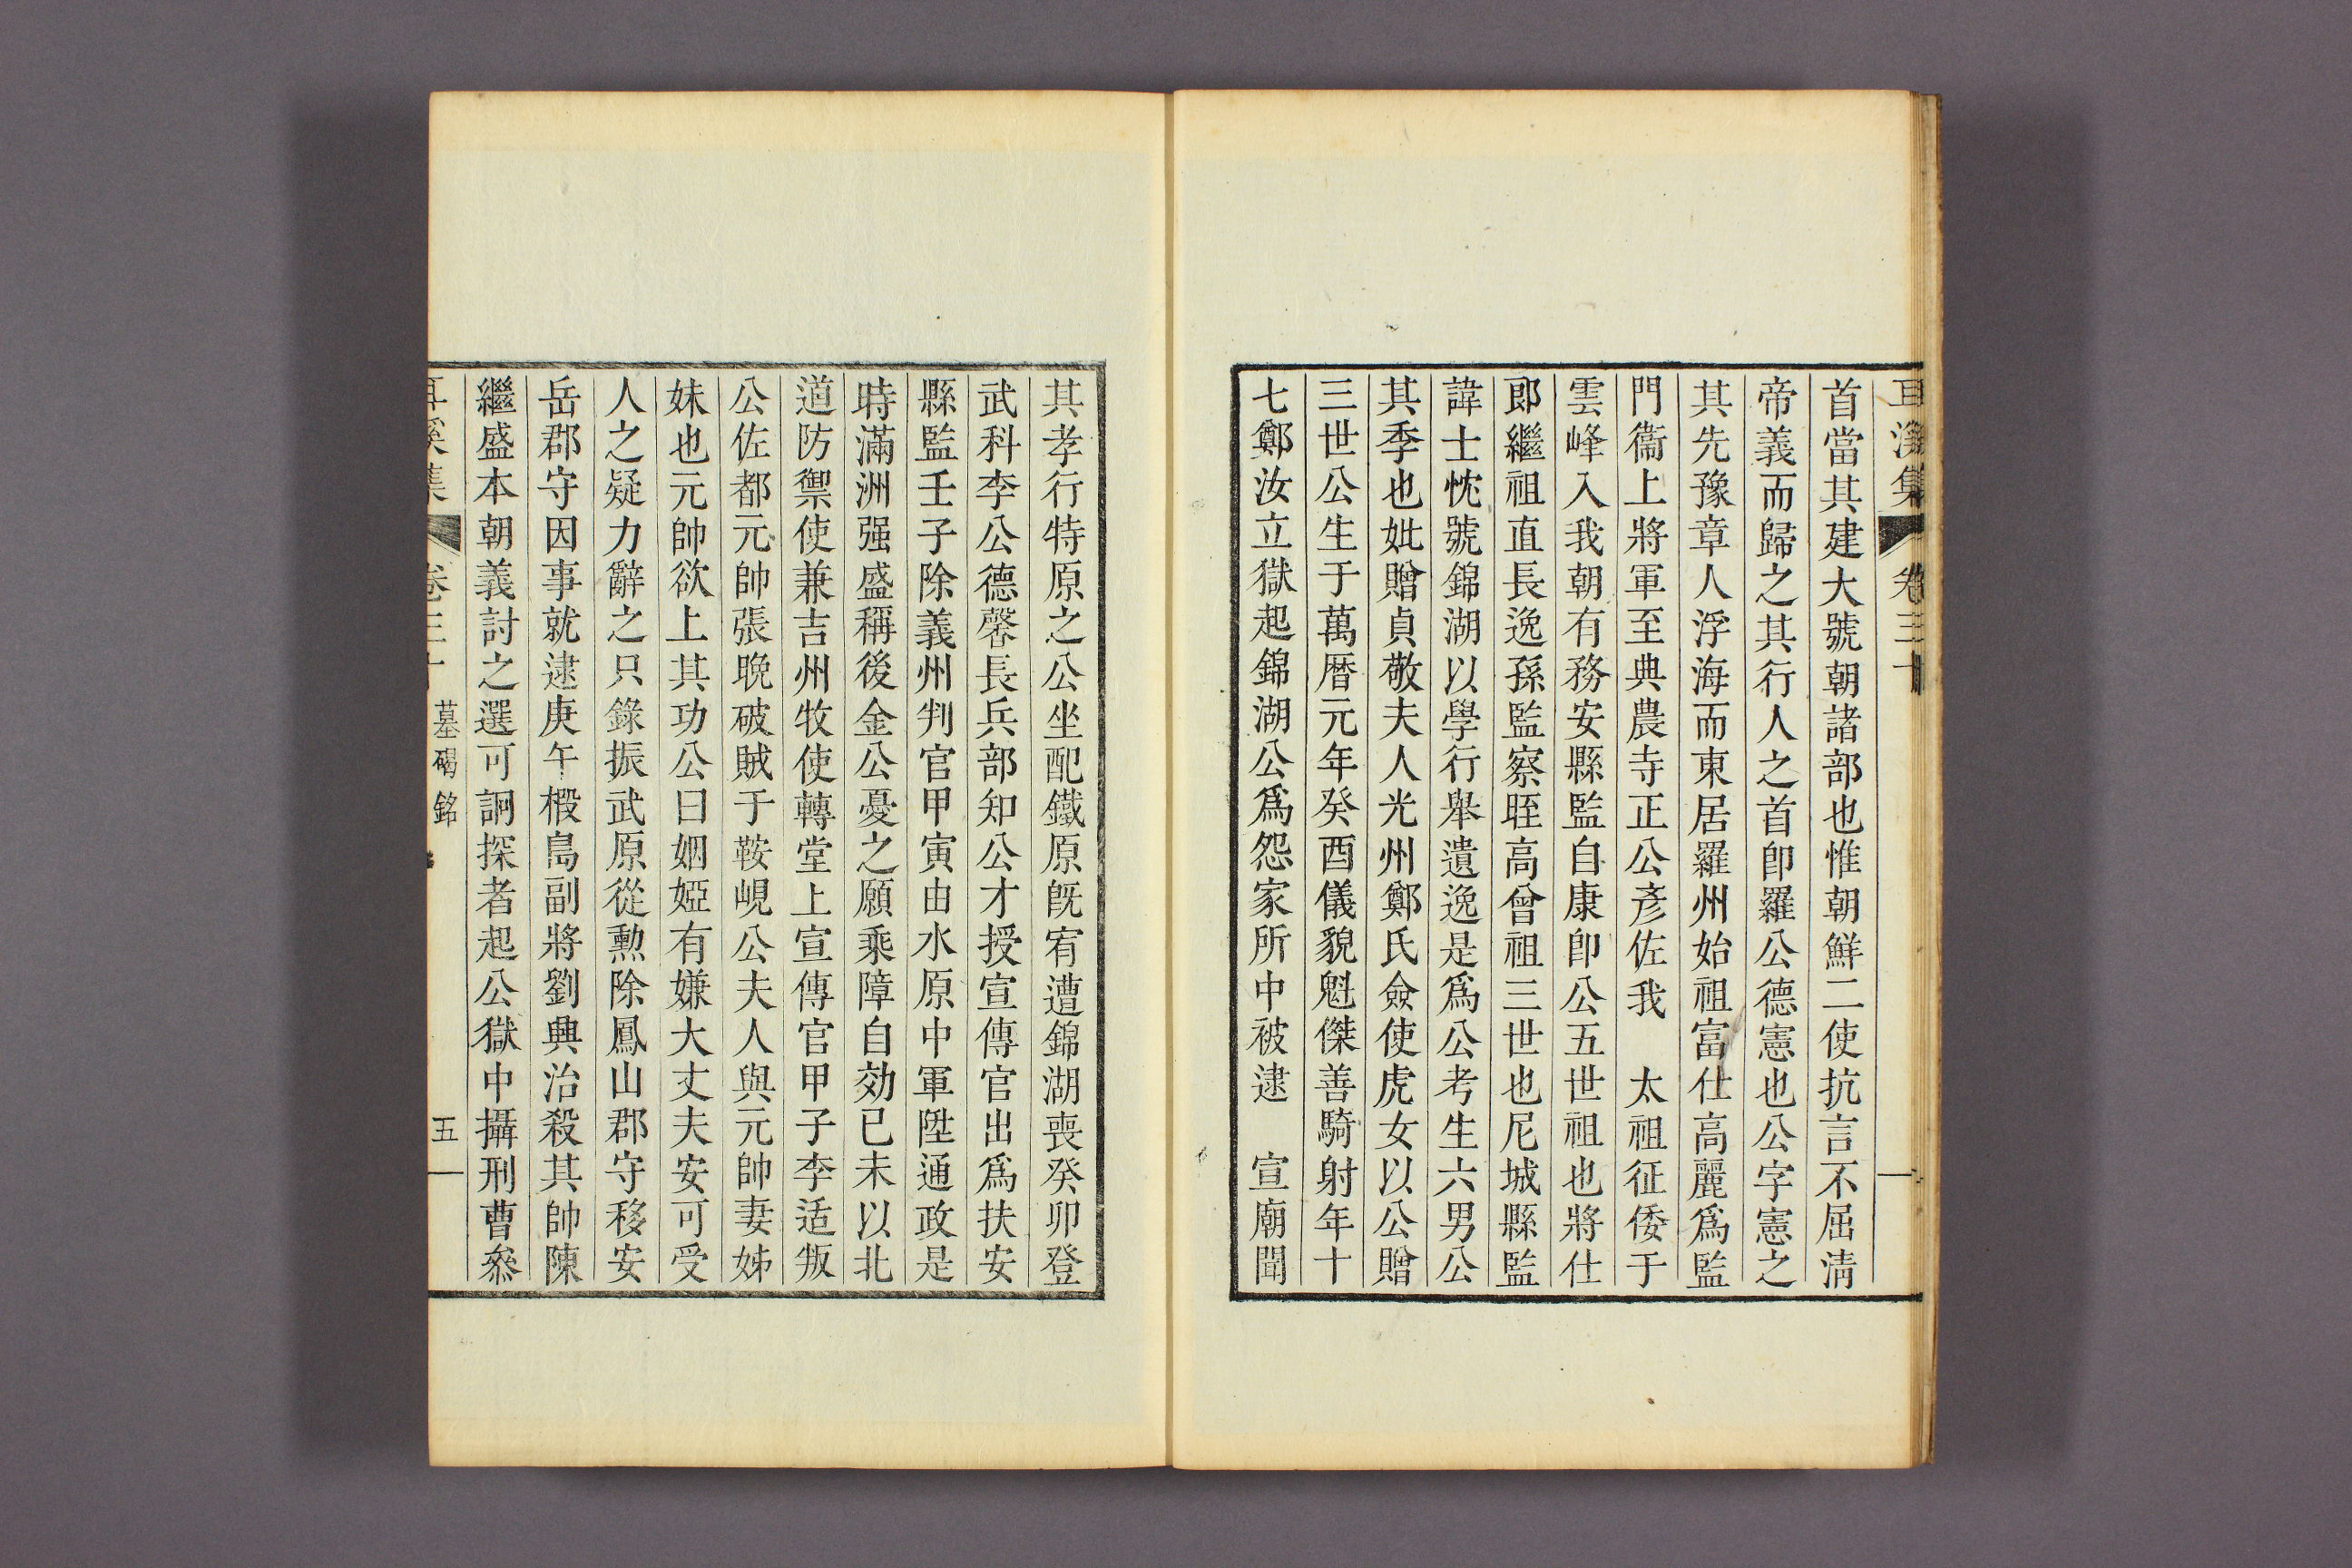 耳溪集 卷三十
首當其建大號朝諸部也惟朝鮮二使抗言不屈淸
帝義而歸之其行人之首卽羅公德憲也公字憲之
其先豫章人浮海而東居羅州始祖富仕高麗爲監
門衞上將軍至典農寺正公彥佐我 太祖征倭于
雲峰入我朝有務安縣監自康卽公五世祖也將仕
郎繼祖直長逸孫監察晊高曾祖三世也尼城縣監
諱士忱號錦湖以學行舉遺逸是爲公考生六男公
其季也妣贈貞敬夫人光州鄭氏僉使虎女以公贈
三世公生于萬曆元年癸酉儀貌魁傑善騎射年十
七鄭汝立獄起錦湖公爲怨家所中被逮 宣廟聞
其孝行特原之公坐配鐵原旣宥遭錦湖喪癸卯登
武科李公德馨長兵部知公才授宣傳官出爲扶安
縣監壬子除義州判官甲寅由水原中軍陞通政是
時滿洲强盛稱後金公憂之願乘障自効已未以北
道防禦使兼吉州牧使轉堂上宣傳官甲子李适叛
公佐都元帥張晚破賊于鞍峴公夫人與元帥妻姊
妹也元帥欲上其功公曰姻婭有嫌大丈夫安可受
人之疑力辭之只錄振武原從勲除鳳山郡守移安
岳郡守因事就逮庚午椵島副將劉興治殺其帥陳
繼盛本朝義討之選可詗探者起公獄中攝刑曹叅
耳溪集 卷三十 墓碣銘 五